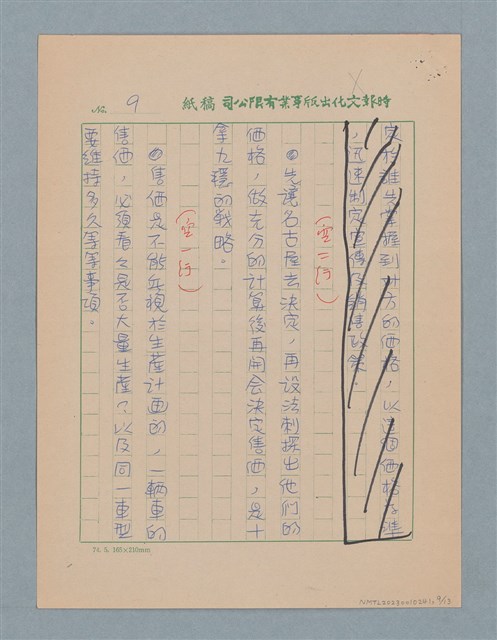 時報文化出版事業有限公司 稿紙
No. 9
定和誰先掌握到對方的價格，以這個價格為準
，迅速制定宣傳及銷售政策。
（空一行）
◎先讓名古屋去決定，再設法刺探出他們的
価格，做充分的計算後再開会決定售価，是十
拿九穩的戦略。
（空一行）
◎售価是不能無視於生產計画的，一輛車的
售価，必須看々是否大量生產了，以及同一車型
要維持多久等等事項。
74. 5. 165×210mm